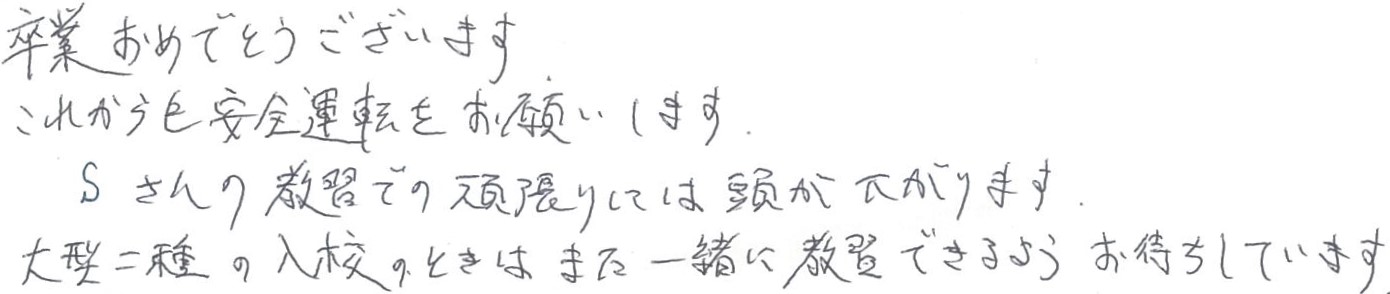 卒業おめでとうございます
これからも安全運転をお願いします.
Sさんの教習での頑張りには頭が下がります.
大型二種の入校のときはまた一緒に教習できるようお待ちしています